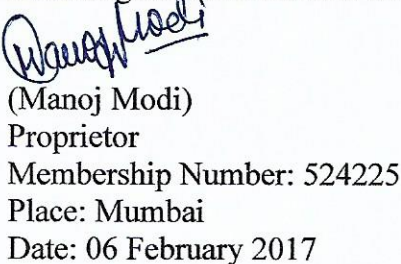 Manoj Modi
(Manoj Modi)
Proprietor
Membership Number: 524225
Place: Mumbai
Date: 06 February 2017